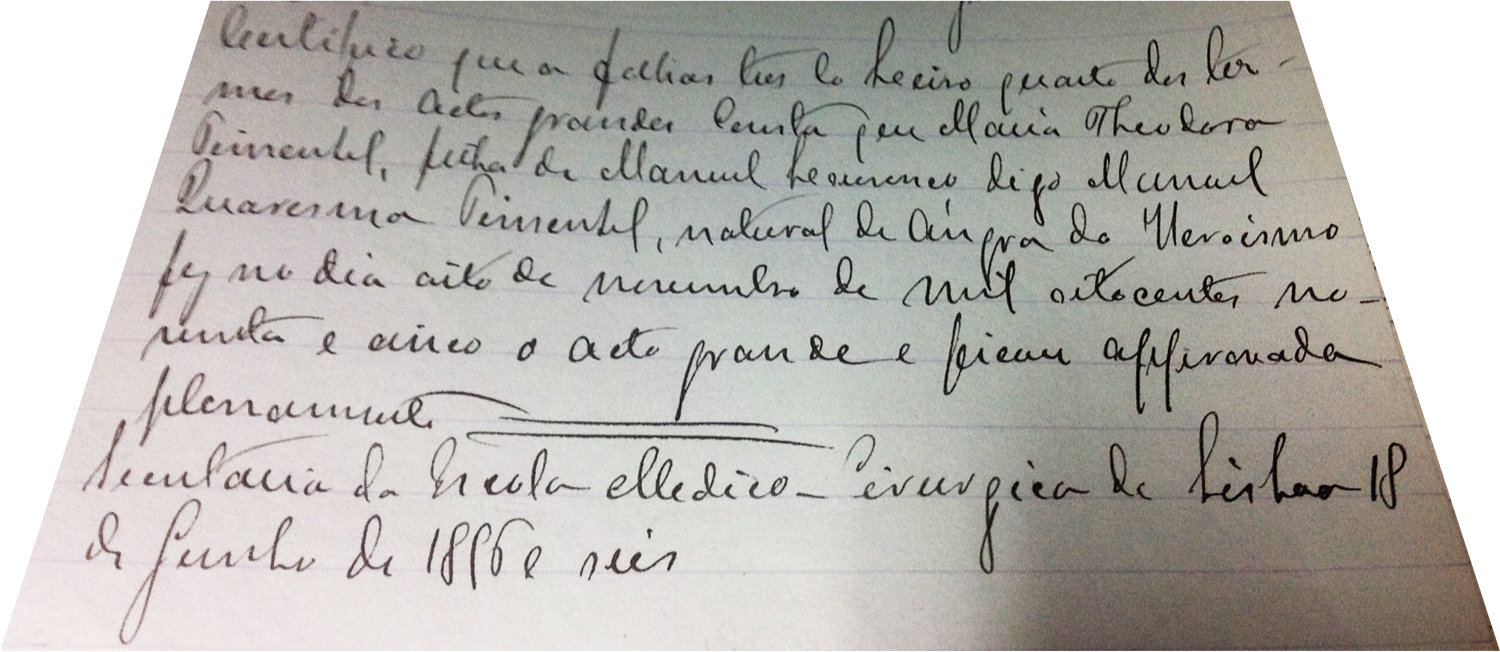 Certifico que a folhas tres do livro quarto dos ter-
mos dos actos grandes consta que Maria Theodora
Pimentel, filha de Manuel Lourenco digo Manuel
Quaresma Pimentel, natural de Angra do Heroismo
fez no dia oito de novembro de mil oitocentos no-
venta e cinco o acto grande e ficou approvada
plenamente
Secretaria da Escola Medico-Cirurgica de Lisboa 18
de Junho de 1896 e seis